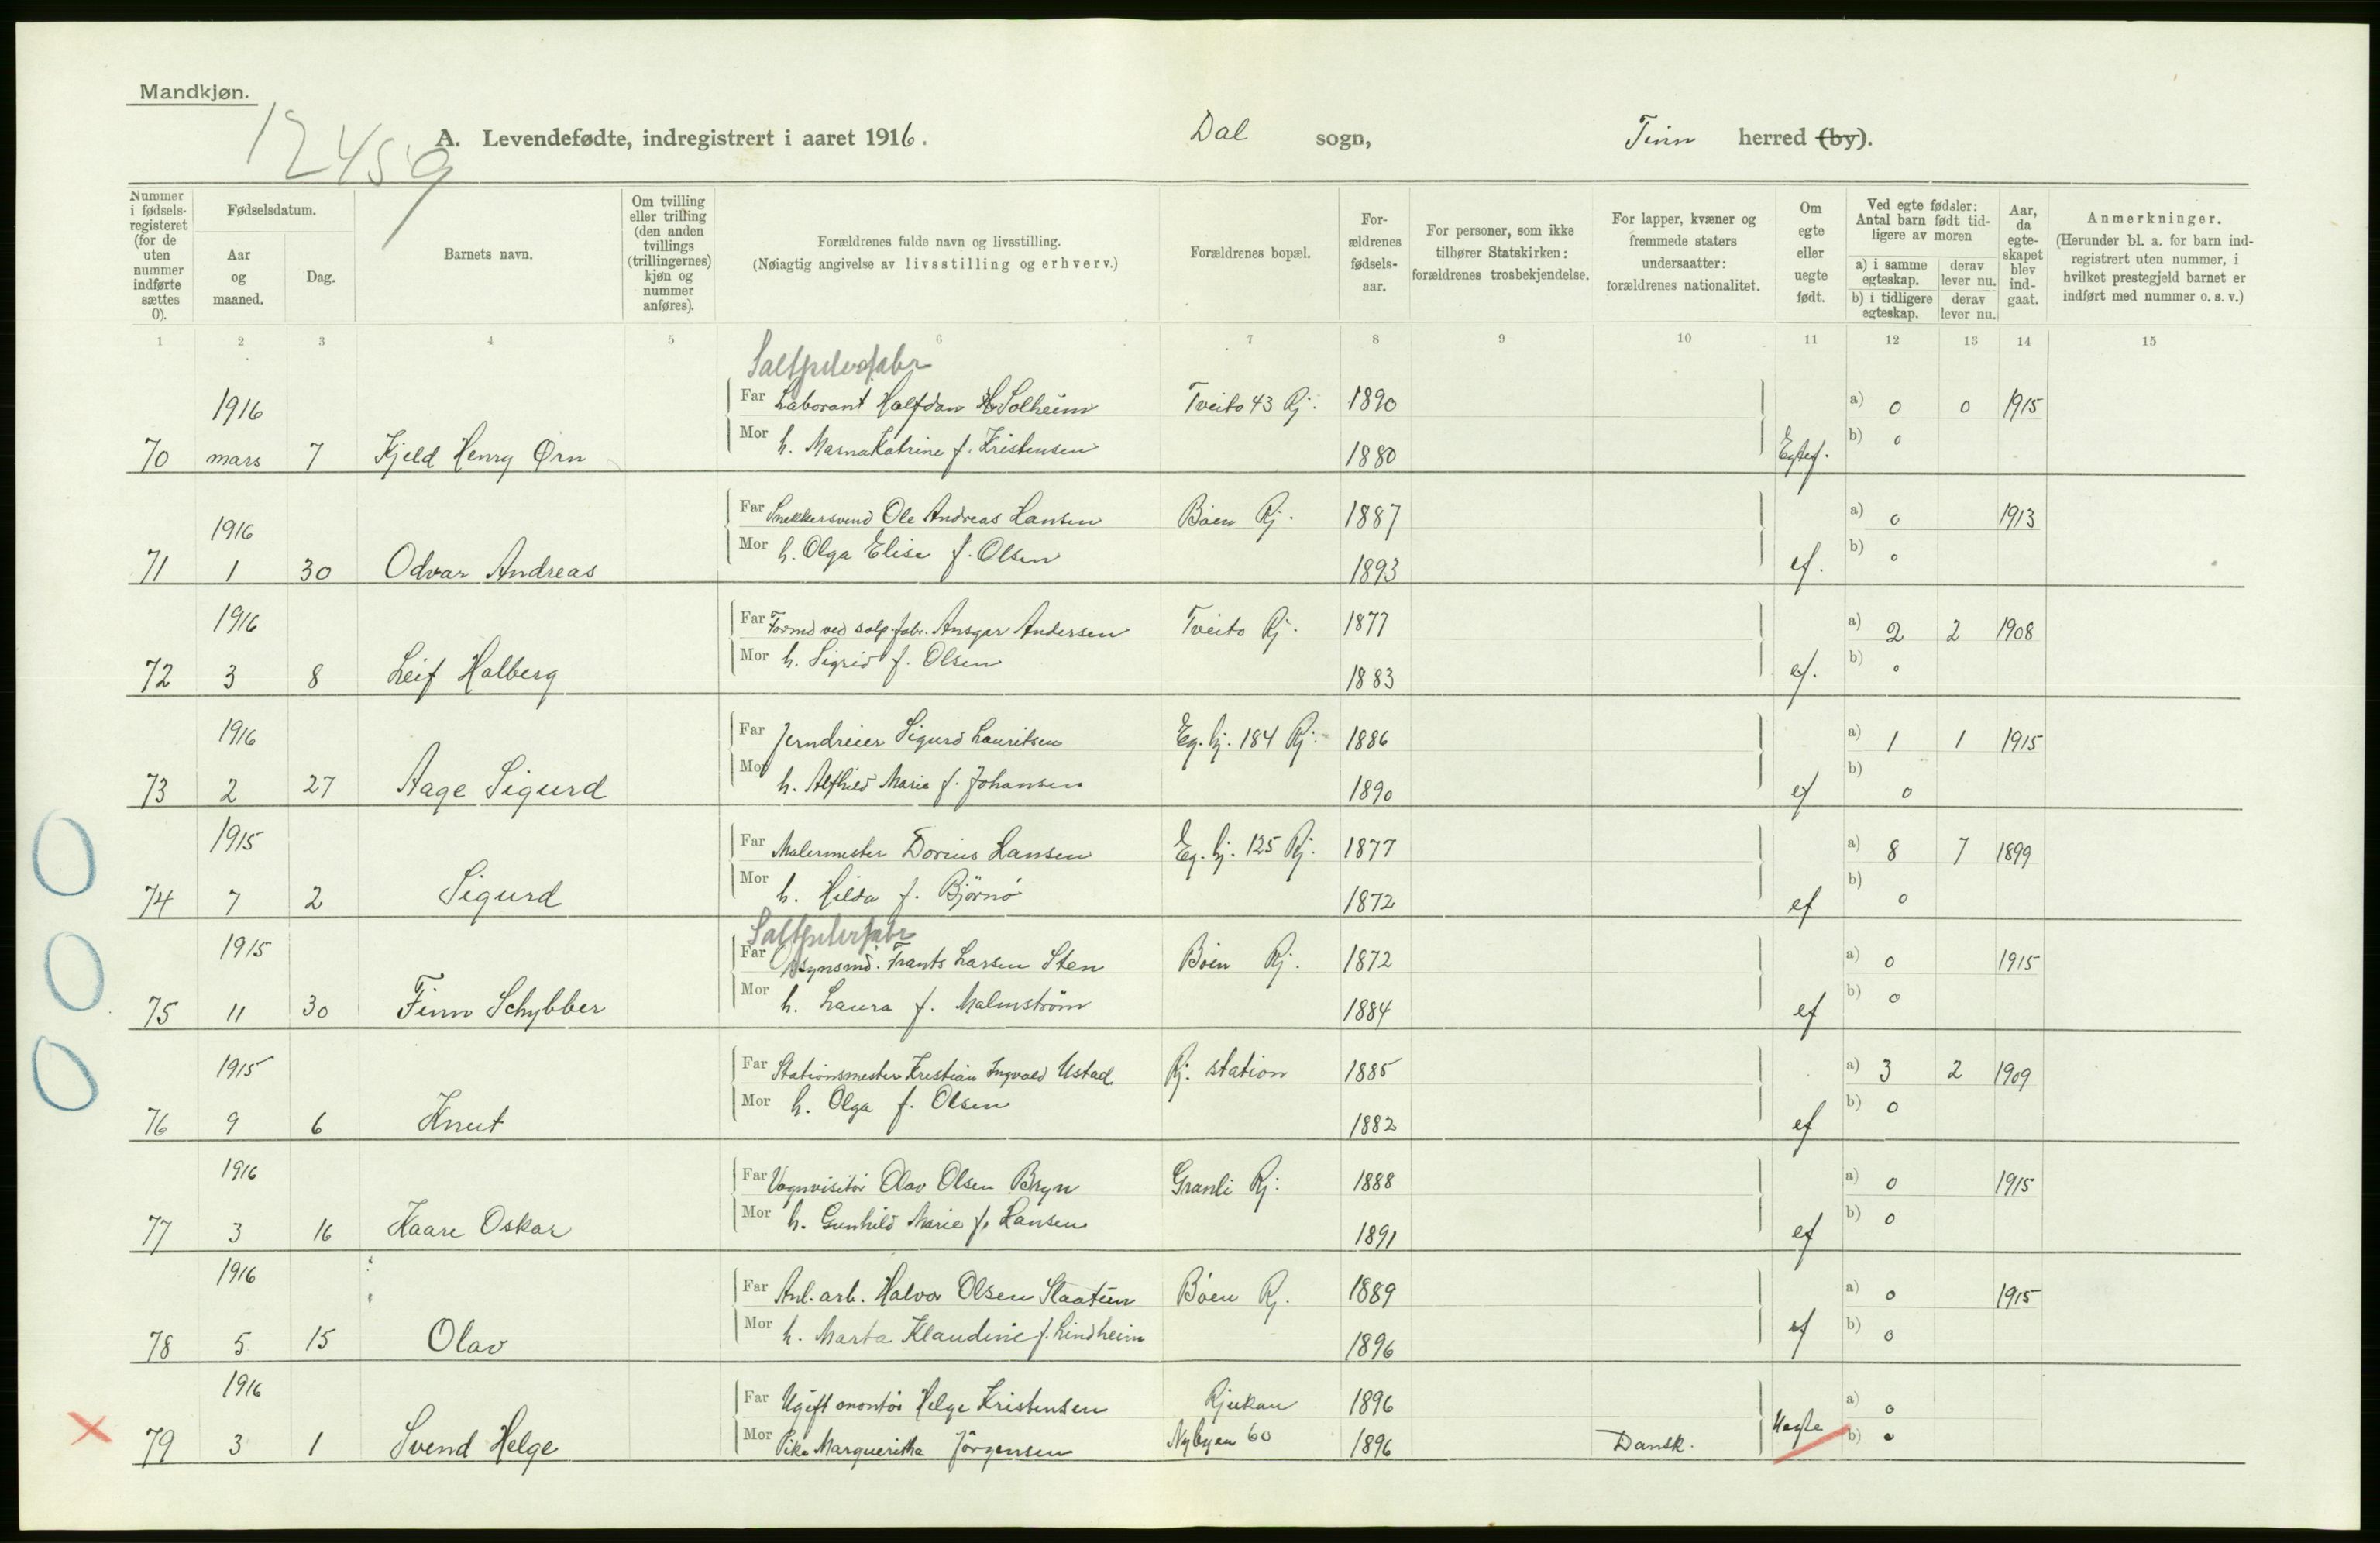 Mandkjøn.
12459
A. Levendefødte, indregistrert i aaret 1916.
Dal sogn,
Tinn herred (by).
Nummer i fødselsregisteret (for de uten nummer indførte sættes 0).
Fødselsdatum.
Aar og maaned.
Dag.
Barnets navn.
Om tvilling eller trilling (den anden tvillings (trillingernes) kjøn og nummer anføres).
Forældrenes fulde navn og livsstilling.
(Nøiagtig angivelse av livsstilling og erhverv.)
Forældrenes bopæl.
Forældrenes fødselsaar.
For personer, som ikke tilhører Statskirken: forældrenes trosbekjendelse.
For lapper, kvæner og fremmede staters undersaatter: forældrenes nationalitet.
Om egte eller uegte født.
Ved egte fødsler: Antal barn født tidligere av moren
a) i samme egteskap. derav lever nu.
b) i tidligere egteskap. derav lever nu.
Aar, da egteskapet blev indgaat.
Anmerkninger.
(Herunder bl. a. for barn indregistrert uten nummer, i hvilket prestegjeld barnet er indført med nummer o. s. v.)
1 2 3 4 5 6 7 8 9 10 11 12 13 14 15
Saltpeterfabr
1916 Far Laborant Halfdan H Solheim Tveito 43 Rj. 1890 a) 0 0 1915
70 mars 7 Kjeld Henry Ørn Mor h. Marna Katrine f. Kristensen 1880 Egtef. b) 0
1916 Far Snekkersvend Ole Andreas Hansen Bøen Rj. 1887 a) 0 1913
71 1 30 Odvar Andreas Mor h. Olga Elise f. Olsen 1893 ef. b) 0
1916 Far Formd ved salp.fabr. Ansgar Andersen Tveito Rj. 1877 a) 2 2 1908
72 3 8 Leif Halberg Mor h. Sigrid f. Olsen 1883 ef. b) 0
1916 Far Jerndreier Sigurd Lauritsen Eg. bj. 184 Rj. 1886 a) 1 1 1915
73 2 27 Aage Sigurd Mor h. Alfhild Marie f. Johansen 1890 ef b) 0
1915 Far Malermester Dorius Hansen Eg. bj. 125 Rj. 1877 a) 8 7 1899
74 7 2 Sigurd Mor h. Hilda f. Björnö 1872 ef b) 0
Saltpeterfabr
1915 Far Opsynsmd. Frants Larsen Sten Bøen Rj. 1872 a) 0 1915
75 11 30 Finn Schybber Mor h. Laura f. Malmström 1884 ef b) 0
1915 Far Stationsmester Kristian Ingvald Ustad Rj. station 1885 a) 3 2 1909
76 9 6 Knut Mor h. Olga f. Olsen 1882 ef b) 0
1916 Far Vognvisitør Olav Olsen Bryn Granli Rj. 1888 a) 0 1915
77 3 16 Kaare Oskar Mor h. Gunhild Marie f. Hansen 1891 ef b) 0
1916 Far Anl. arb. Halvor Olsen Slaatun Bøen Rj. 1889 a) 0 1915
78 5 15 Olav Mor h. Marta Klaudine f. Lindheim 1896 ef b) 0
1916 Far Ugift montør Helge Kristensen Rjukan 1896 a) 0
79 3 1 Svend Helge Mor Pike Margueritha Jörgensen Nybyen 60 1896 Dansk. Uegte b) 0